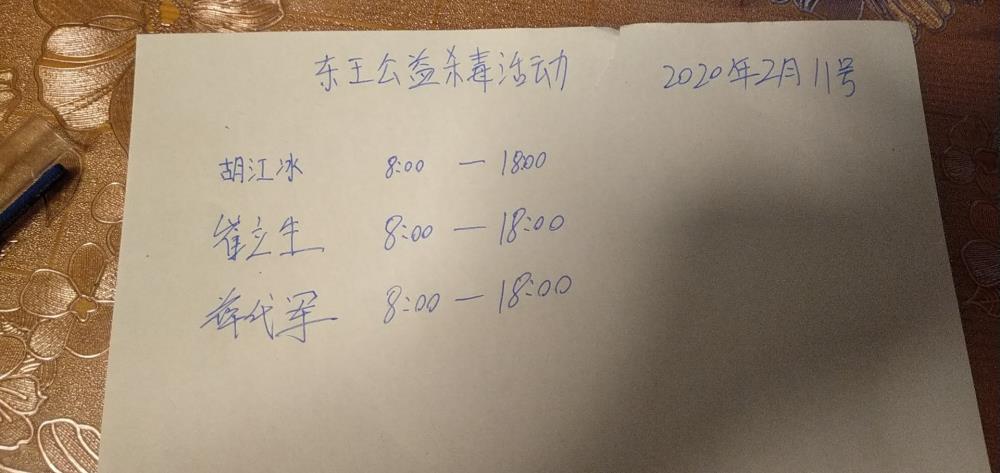 东王公益杀毒活动 2020年2月11号
胡江冰 8:00 — 18:00
崔立生 8:00 — 18:00
薛代军 8:00 — 18:00